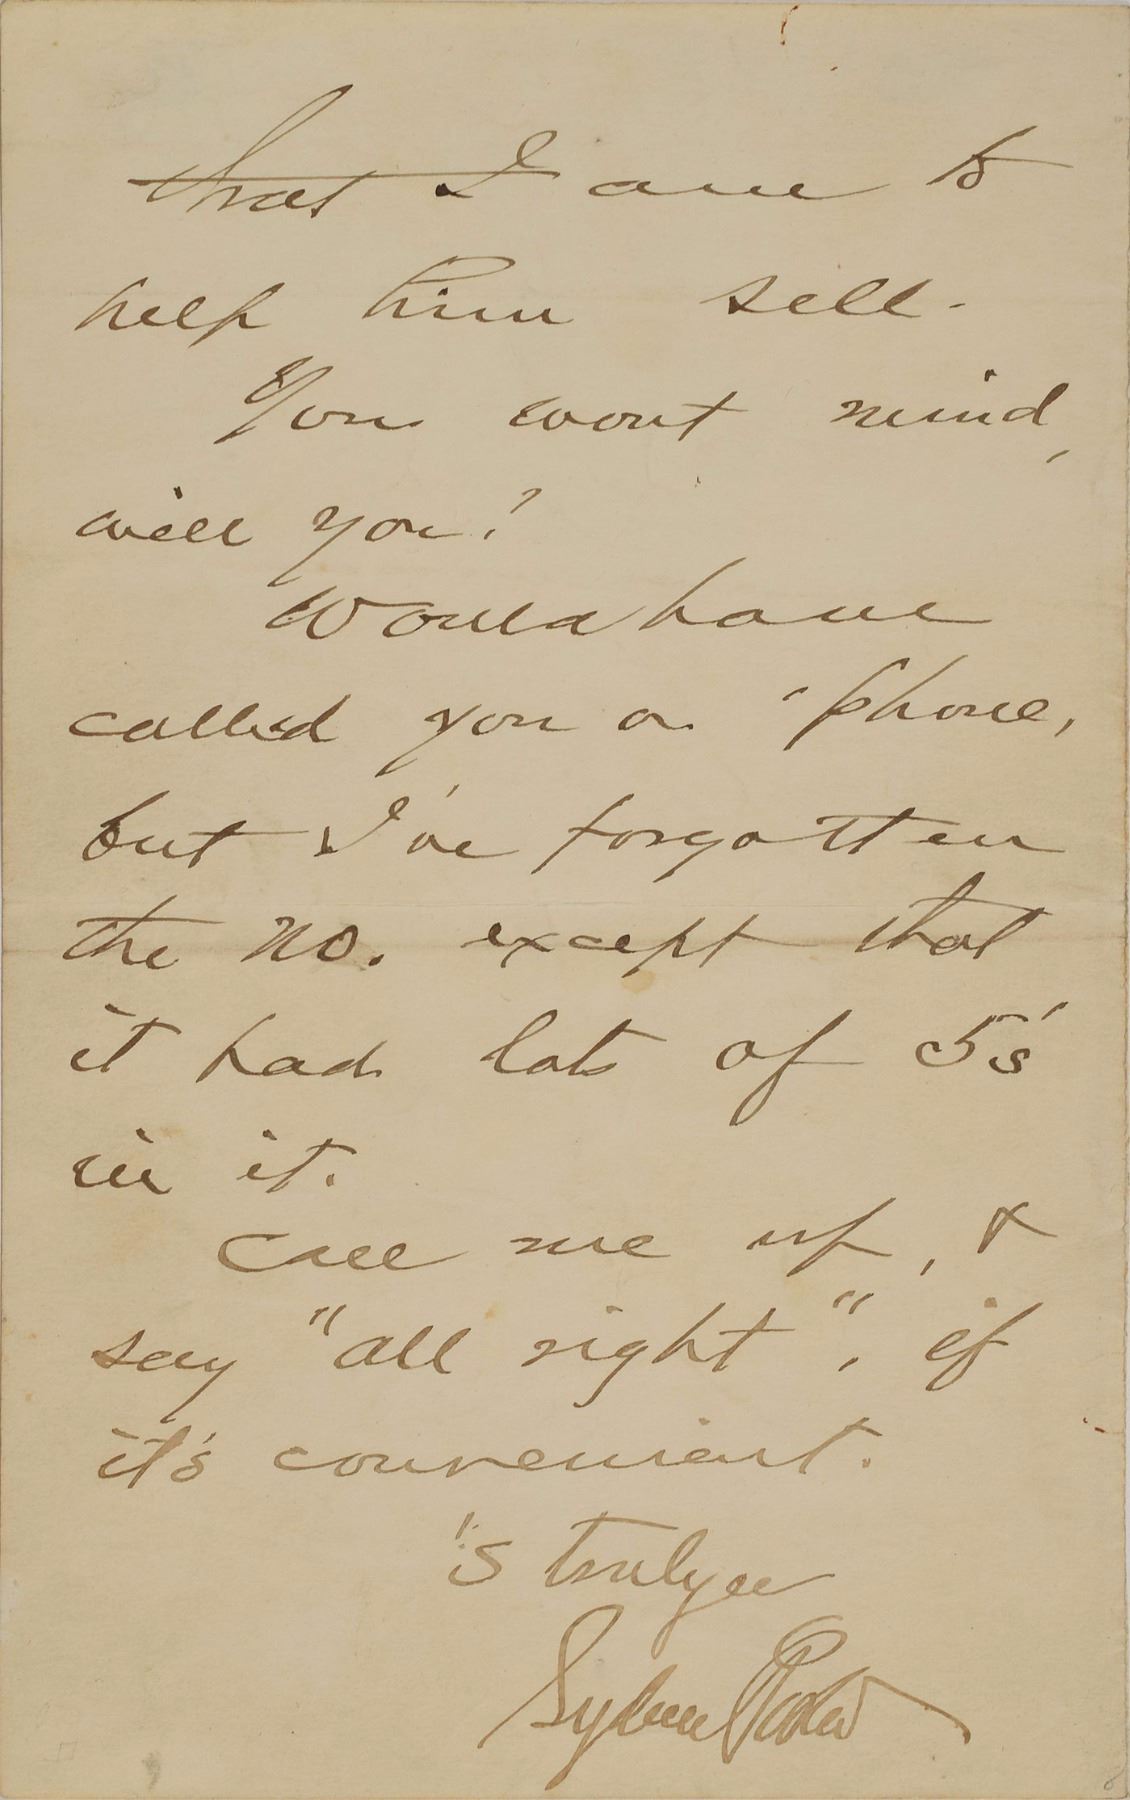 that I am to
help him sell.
You wont mind,
will you?
Would have
called you on 'phone,
but I've forgotten
the no. except that
it had lots of 5's
in it.
Call me up, &
say "all right", if
it's convenient.
's trulyee
Sydney Porter